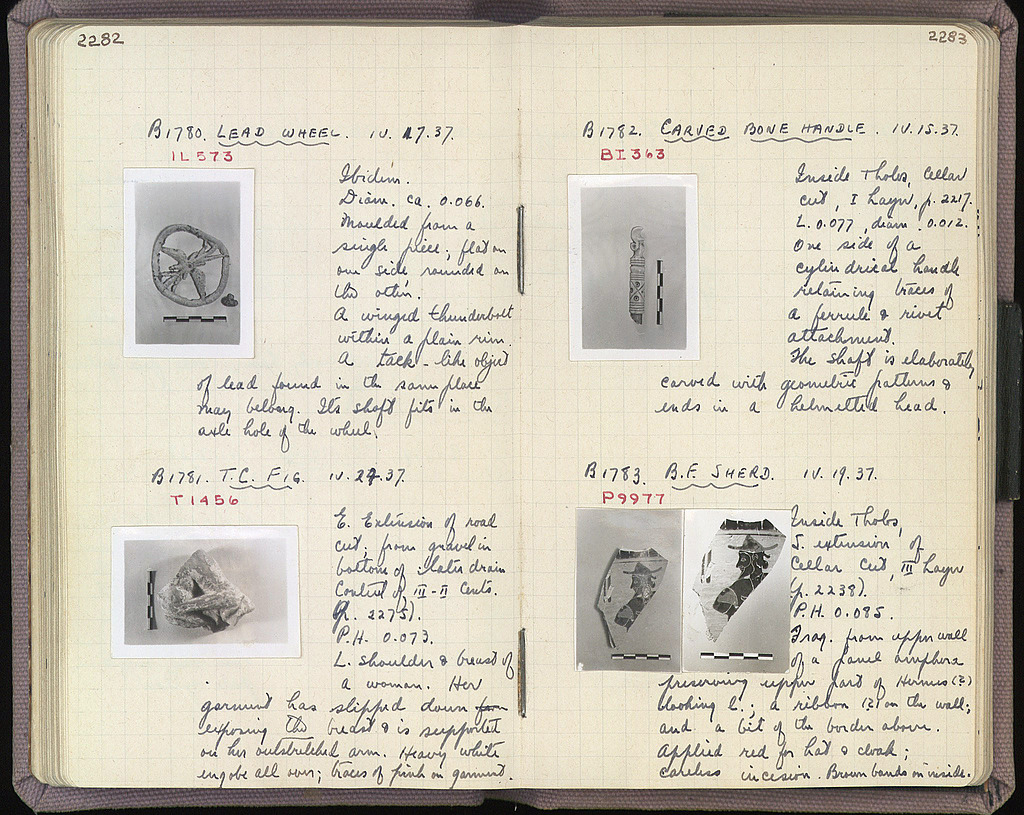 2282
B1780. LEAD WHEEL. IV. 17.37.
IL 573
Ibidem.
Diam. ca. 0.066.
Moulded from a
single piece; flat on
one side rounded on
the other.
A winged thunderbolt
within a plain rim.
A tack-like object
of lead found in the same place
may belong. Its shaft fits in the
axle hole of the wheel.
B1781. T.C. FIG. IV. 27.37.
T 1456
E. Extension of road
cut; from gravel in
bottom of later drain
Context of III-II Cents.
(p. 2275).
P.H. 0.073.
L. shoulder & breast of
a woman. Her
garment has slipped down
exposing the breast & is supported
on her outstretched arm. Heavy white
engobe all over; traces of pink on garment.
2283
B1782. CARVED BONE HANDLE. IV.15.37.
BI 363
Inside Tholos, Cellar
cut, I Layer, p. 2217.
L. 0.077, diam. 0.012.
One side of a
cylindrical handle
retaining traces of
a ferrule & rivet
attachment.
The shaft is elaborately
carved with geometric patterns &
ends in a helmetted head.
B1783. B.F. SHERD. IV. 19.37.
P 9977
Inside Tholos,
S. extension of
Cellar Cut, III Layer
(p. 2238).
P.H. 0.085.
Frag. from upper wall
of a panel amphora
preserving upper part of Hermes (?)
looking l.; a ribbon (?) on the wall;
and a bit of the border above.
Applied red for hat & cloak;
careless incision. Brown bands on inside.